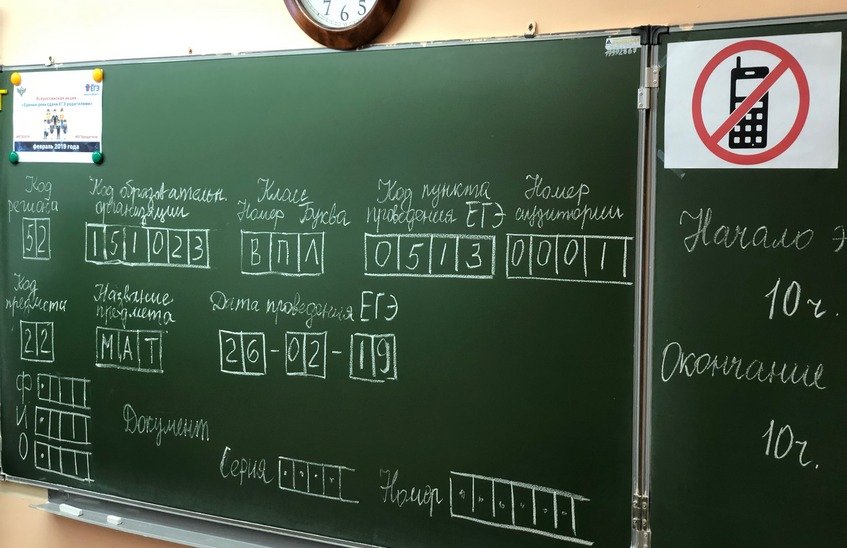 7 6 5
Всероссийская акция
«Единый день сдачи ЕГЭ родителями»
ЕГЭ
февраль 2019 года
Код региона
52
Код образовательн. организации
151023
Класс
Номер Буква
ВПЛ
Код пункта проведения ЕГЭ
0513
Номер аудитории
0001
Код предмета
22
Название предмета
МАТ
Дата проведения ЕГЭ
26-02-19
Ф
И
О
Документ
Серия
Номер
Начало э
10ч.
Окончание
10ч.